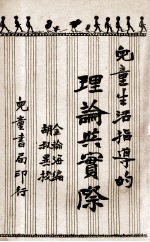 兒童生活指導的
理論與實際
金海觀編
胡叔異校
兒童書局印行